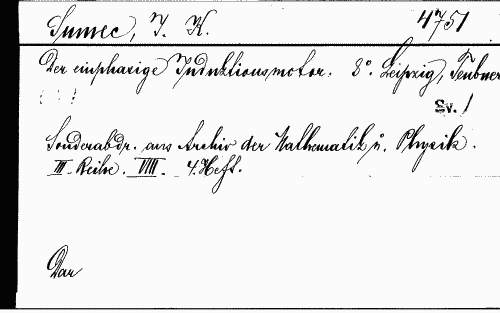 Sumec, J. K. 4751
Der einphasige Induktionsmotor. 8°. Leipzig, Teubner
Sv. 1
Sonderabdr. aus Archiv der Mathematik u. Physik.
III. Reihe. VIII. 4. Heft.
Dar